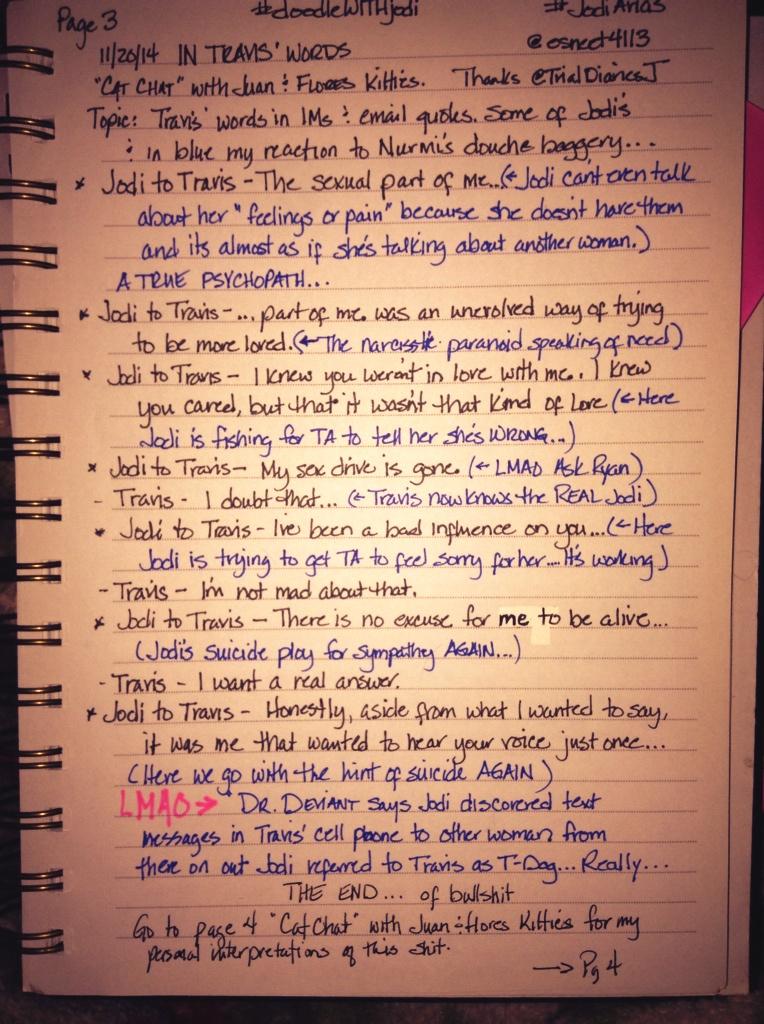 Page 3 #doodleWITHjodi #JodiArias
11/20/14 IN TRAVIS' WORDS @osneet4113
"CAT CHAT" with Juan & FLORES Kitties. Thanks @TrialDiariesJ
Topic: Travis' words in IMs & email quotes. Some of Jodi's
& in blue my reaction to Nurmi's douche baggery...
* Jodi to Travis - The sexual part of me..(← Jodi can't even talk
about her "feelings or pain" because she doesn't have them
and its almost as if she's talking about another woman.)
A TRUE PSYCHOPATH...
* Jodi to Travis - ... part of me. was an unevolved way of trying
to be more loved. (← The narcisstic paranoid speaking of need)
* Jodi to Travis - I knew you weren't in love with me.. I knew
you cared, but that it wasn't that kind of Love (← Here
Jodi is fishing for TA to tell her she's WRONG...)
* Jodi to Travis - My sex drive is gone. (← LMAO Ask Ryan)
- Travis - I doubt that... (← Travis now knows the REAL Jodi)
* Jodi to Travis - Ive been a bad influence on you...(← Here
Jodi is trying to get TA to feel sorry for her.... It's working)
- Travis - I'm not mad about that.
* Jodi to Travis - There is no excuse for me to be alive...
(Jodi's suicide play for sympathey AGAIN...)
- Travis - I want a real answer.
* Jodi to Travis - Honestly, aside from what I wanted to say,
it was me that wanted to hear your voice just once...
(Here we go with the hint of suicide AGAIN)
LMAO → DR. DEVIANT says Jodi discovered text
messages in Travis' cell phone to other woman from
there on out Jodi referred to Travis as T-Dog... Really...
THE END... of bullshit
Go to page 4 "Cat Chat" with Juan & flores Kitties for my
personal interpretations of this shit.
→ Pg 4